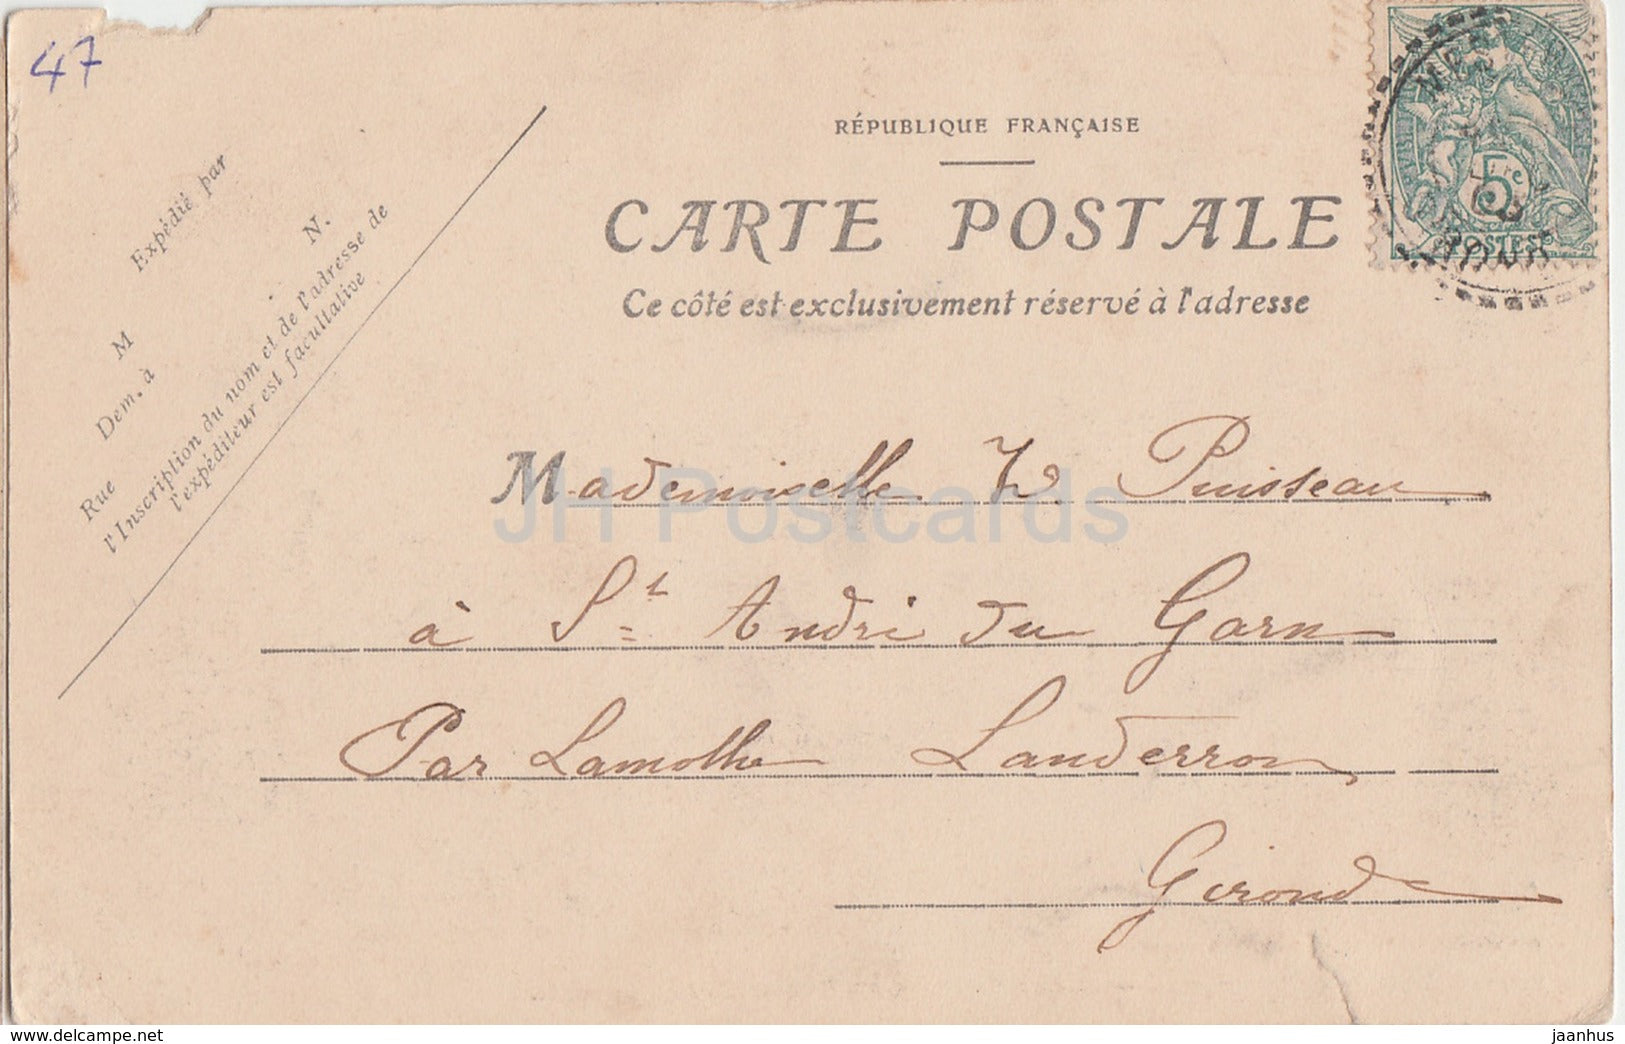 47
RÉPUBLIQUE FRANÇAISE
CARTE POSTALE
Ce côté est exclusivement réservé à l'adresse
Expédié par
M
N.
Dem. à
Rue
l'Inscription du nom et de l'adresse de
l'expéditeur est facultative
5c
POSTES
Mademoiselle Puisseau
à St André du Garn
Par Lamothe Landerron
Gironde
JH Postcards
www.delcampe.net
jaanhus